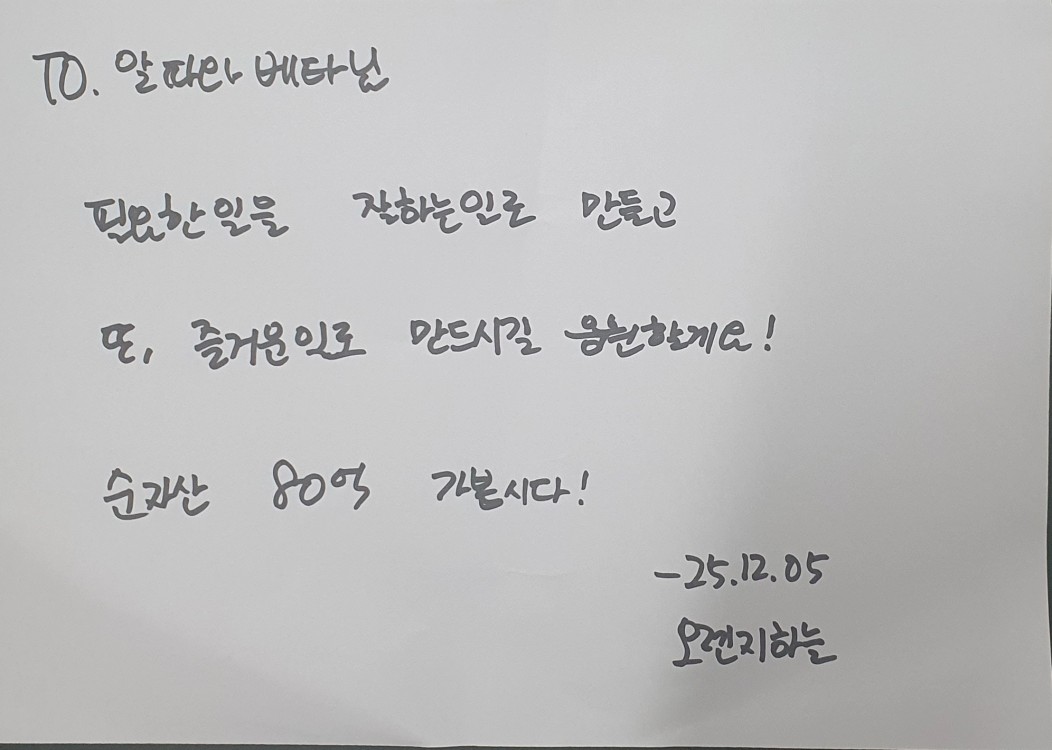 TO. 알파와 베타님
필요한일을 잘하는일로 만들고
또, 즐거운일로 만드시길 응원할게요!
순자산 80억 가봅시다!
-25.12.05
오렌지하늘